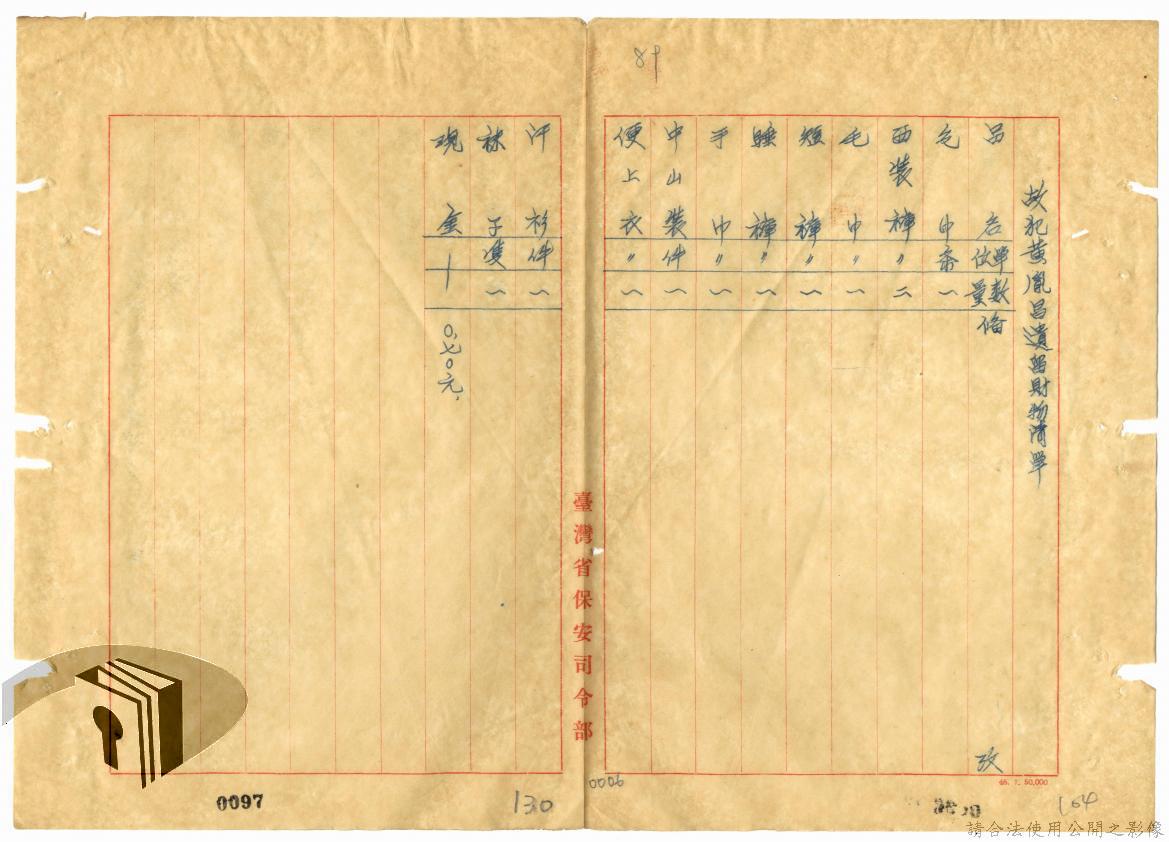 89
故犯黃胤昌遺留財物清單
品名 單位 數量 備 攷
毛巾 条 一
西裝褲 〃 二
毛巾 〃 一
短褲 〃 一
睡褲 〃 一
手巾 〃 一
中山裝 件 一
便上衣 〃 一
汗衫 件 一
襪子 雙 一
現金 十0.七0元
臺灣省保安司令部
46. 7. 50,000
0006
164
0097
130
請合法使用公開之影像